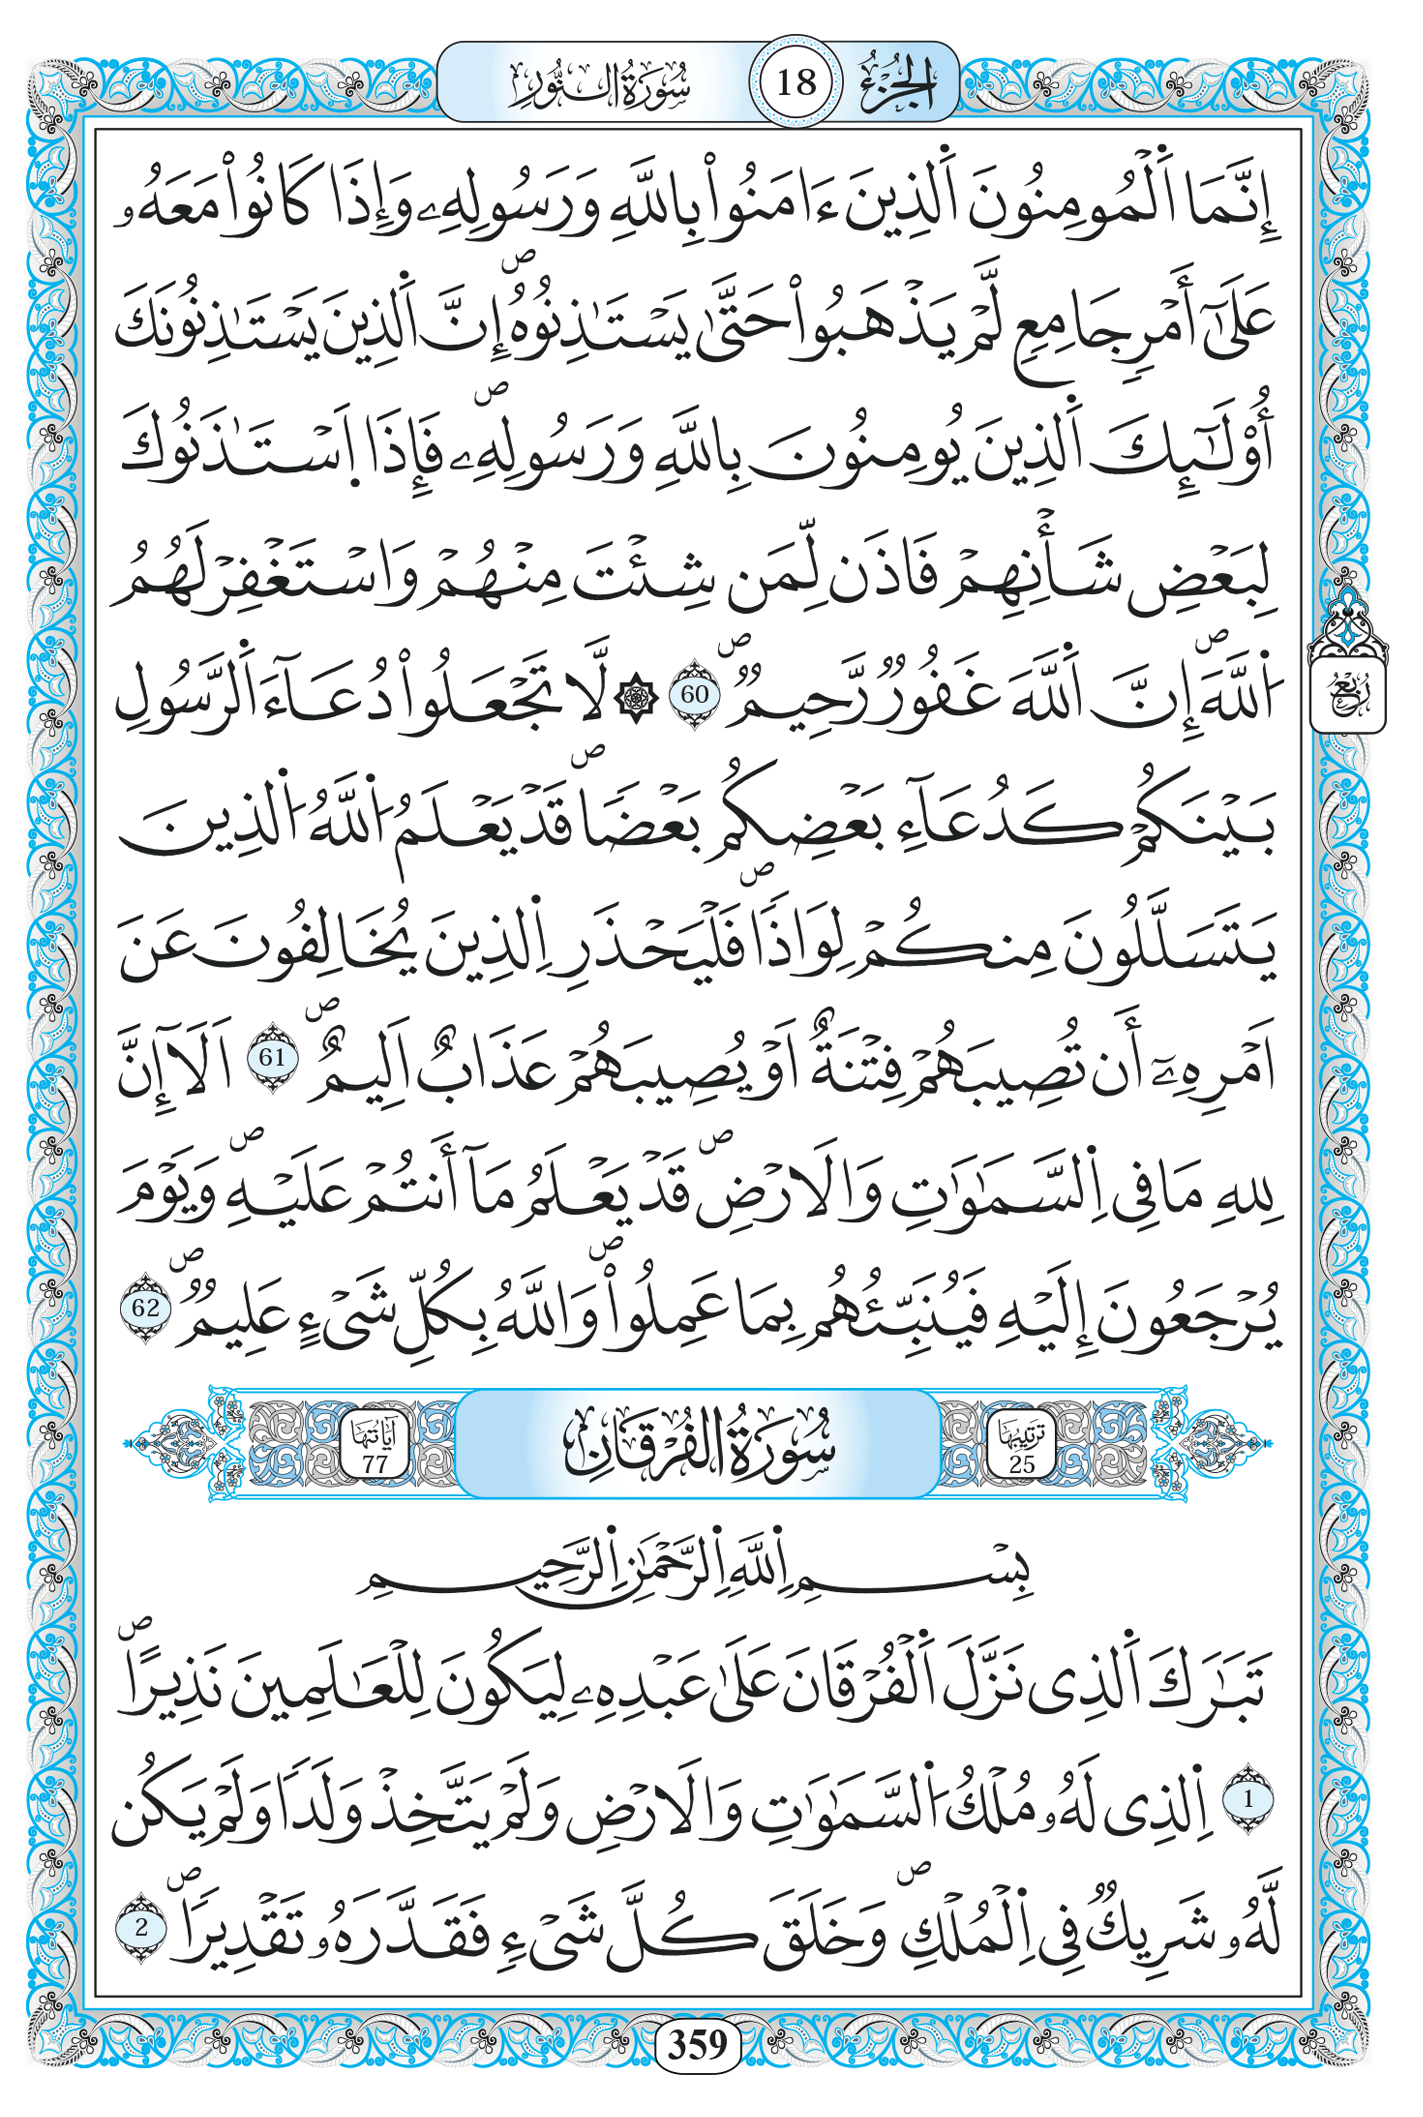 الجزء 18 سورة النور
إِنَّمَا اَ۬لْمُومِنُونَ اَ۬لذِينَ ءَامَنُواْ بِاللَّهِ وَرَسُولِهِۦ وَإِذَا كَانُواْ مَعَهُۥ
عَلَىٰٓ أَمْرٖ جَامِعٖ لَّمْ يَذْهَبُواْ حَتَّىٰ يَسْتَٰذِنُوهُۖ إِنَّ اَ۬لذِينَ يَسْتَٰذِنُونَكَ
أُوْلَٰٓئِكَ اَ۬لذِينَ يُومِنُونَ بِاللَّهِ وَرَسُولِهِۦۖ فَإِذَا اَ۪سْتَٰذَنُوكَ
لِبَعْضِ شَأْنِهِمْ فَاذَن لِّمَن شِئْتَ مِنْهُمْ وَاسْتَغْفِرْ لَهُمُ
اُ۬للَّهَۖ إِنَّ اَ۬للَّهَ غَفُورٞ رَّحِيمٞۖ 60 ۞ لَّا تَجْعَلُواْ دُعَآءَ اَ۬لرَّسُولِ
بَيْنَكُمْ كَدُعَآءِ بَعْضِكُم بَعْضاٗۖ قَدْ يَعْلَمُ اُ۬للَّهُ اُ۬لذِينَ
يَتَسَلَّلُونَ مِنكُمْ لِوَاذاٗۖ فَلْيَحْذَرِ اِ۬لذِينَ يُخَالِفُونَ عَنَ
اَمْرِهِۦٓ أَن تُصِيبَهُمْ فِتْنَةٌ اَوْ يُصِيبَهُمْ عَذَابٌ اَلِيمٌۖ 61 اَلَآ إِنَّ
لِلهِ مَا فِي اِ۬لسَّمَٰوَٰتِ وَالَارْضِۖ قَدْ يَعْلَمُ مَآ أَنتُمْ عَلَيْهِۖ وَيَوْمَ
يُرْجَعُونَ إِلَيْهِ فَيُنَبِّئُهُم بِمَا عَمِلُواْۖ وَاللَّهُ بِكُلِّ شَيْءٍ عَلِيمٞۖ 62
ترتيبها 25 سورة الفرقان آياتها 77
بِسْمِ اِ۬للَّهِ اِ۬لرَّحْمَٰنِ اِ۬لرَّحِيمِ
تَبَٰرَكَ اَ۬لذِي نَزَّلَ اَ۬لْفُرْقَانَ عَلَىٰ عَبْدِهِۦ لِيَكُونَ لِلْعَٰلَمِينَ نَذِيراًۖ
1 اِ۬لذِي لَهُۥ مُلْكُ اُ۬لسَّمَٰوَٰتِ وَالَارْضِ وَلَمْ يَتَّخِذْ وَلَداٗ وَلَمْ يَكُن
لَّهُۥ شَرِيكٞ فِي اِ۬لْمُلْكِۖ وَخَلَقَ كُلَّ شَيْءٖ فَقَدَّرَهُۥ تَقْدِيراٗۖ 2
ربع
359